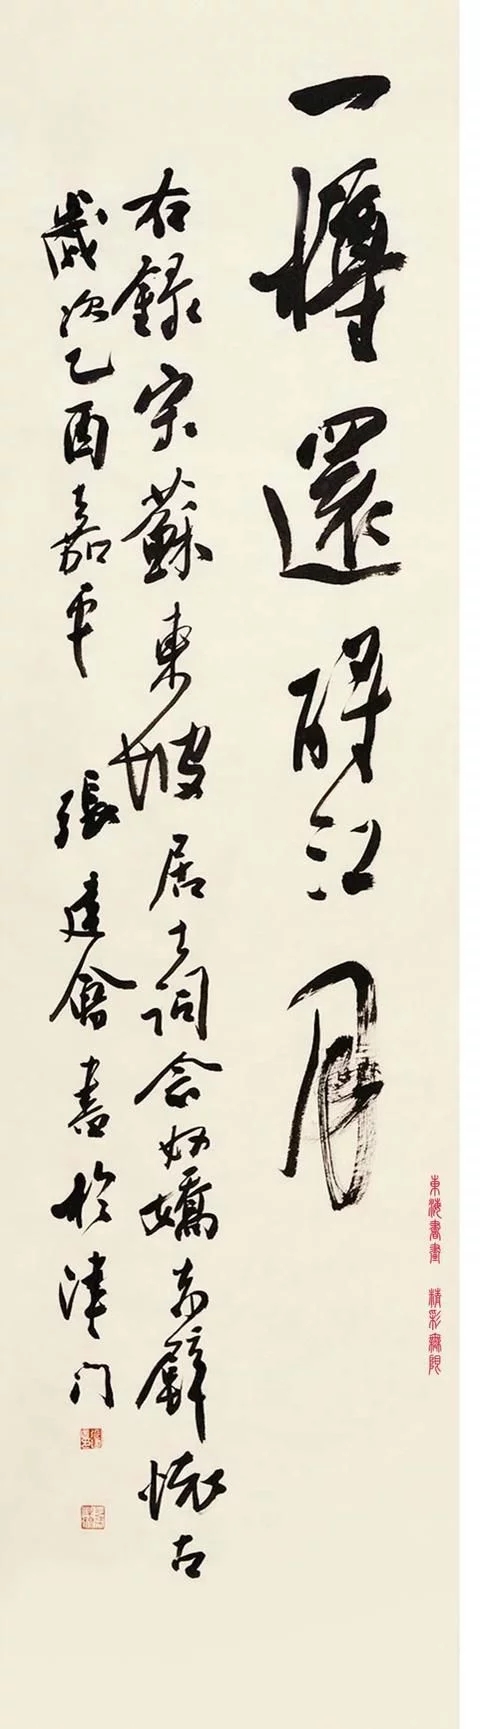 一樽還酹江月
右錄宋蘇東坡居士詞念奴嬌赤壁懷古
歲次乙酉嘉平 張建會書於津门
東海書畫 精彩無限